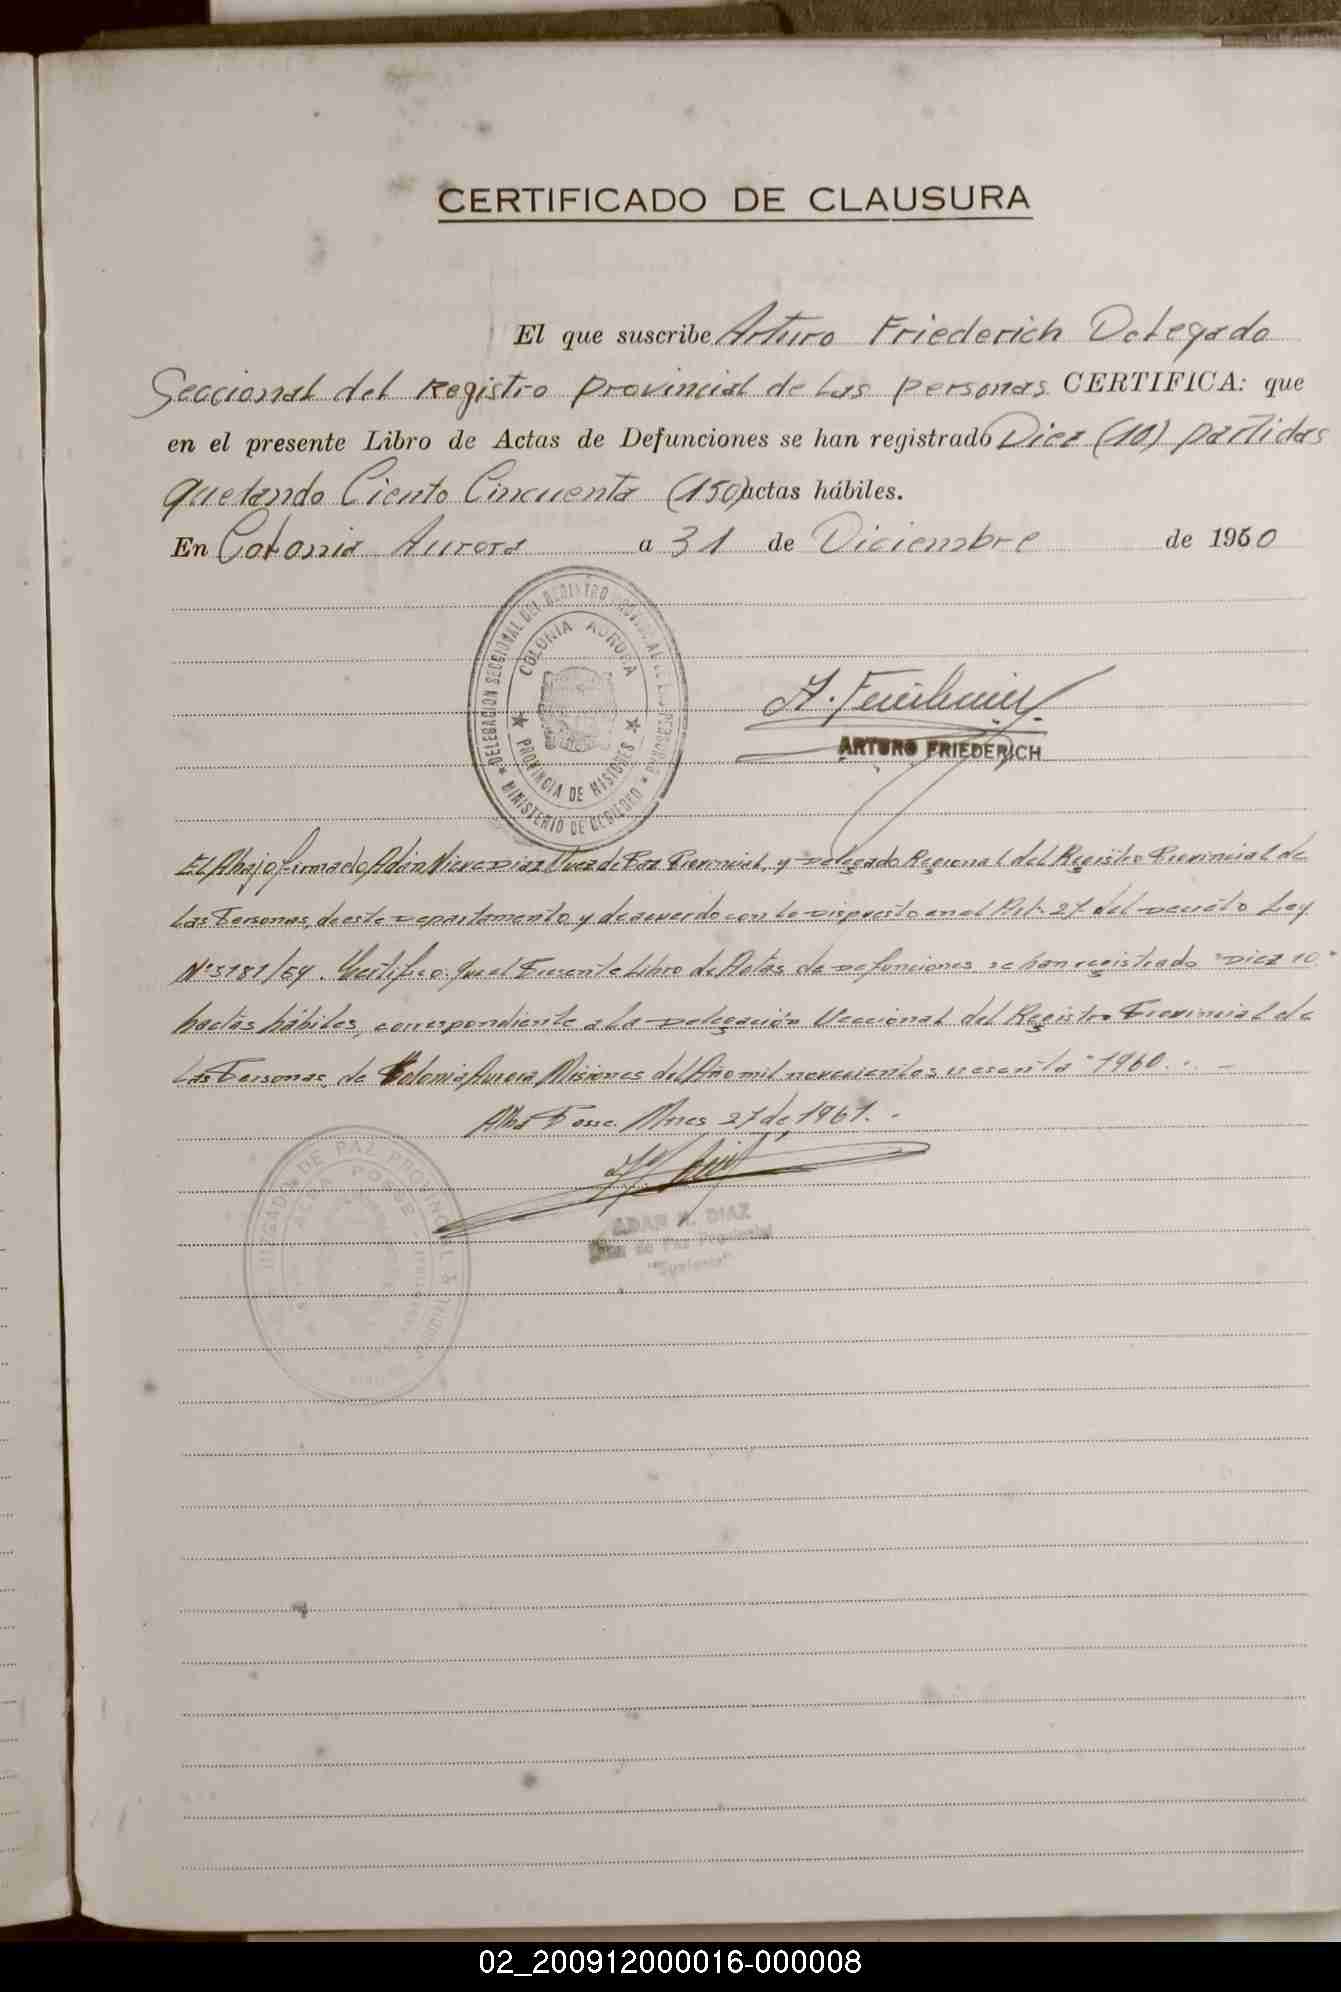 CERTIFICADO DE CLAUSURA
El que suscribe Arturo Friederich Delegado
Seccional del Registro Provincial de las personas CERTIFICA: que
en el presente Libro de Actas de Defunciones se han registrado Diez (10) partidas
quedando Ciento Cincuenta (150) actas hábiles.
En Colonia Aurora a 31 de Diciembre de 1960
DELEGACION SECCIONAL DEL REGISTRO PROVINCIAL DE LAS PERSONAS
COLONIA AURORA
PROVINCIA DE MISIONES
MINISTERIO DE GOBIERNO
ARTURO FRIEDERICH
El Abajo firmado, Adán Dias Juez de Paz Provincial, y Delegado Regional del Registro Provincial de
Las Personas, de este Departamento y de acuerdo con lo Dispuesto en el Art. 27 del Decreto Ley
Nº 3181/59. Certifico que el Presente Libro de Actas de Defunciones se han registrado "Diez 10"
hactas hábiles, correspondiente a la Delegación Seccional del Registro Provincial de
Las Personas, de Colonia Aurora Misiones del Año mil novecientos sesenta "1960.
Alba Posse. 27 de, 1961.
JUZGADO DE PAZ PROVINCIAL
ALBA POSSE
ADAN N. DIAZ
Juez de Paz Provincial
"Suplente"
02_200912000016-000008